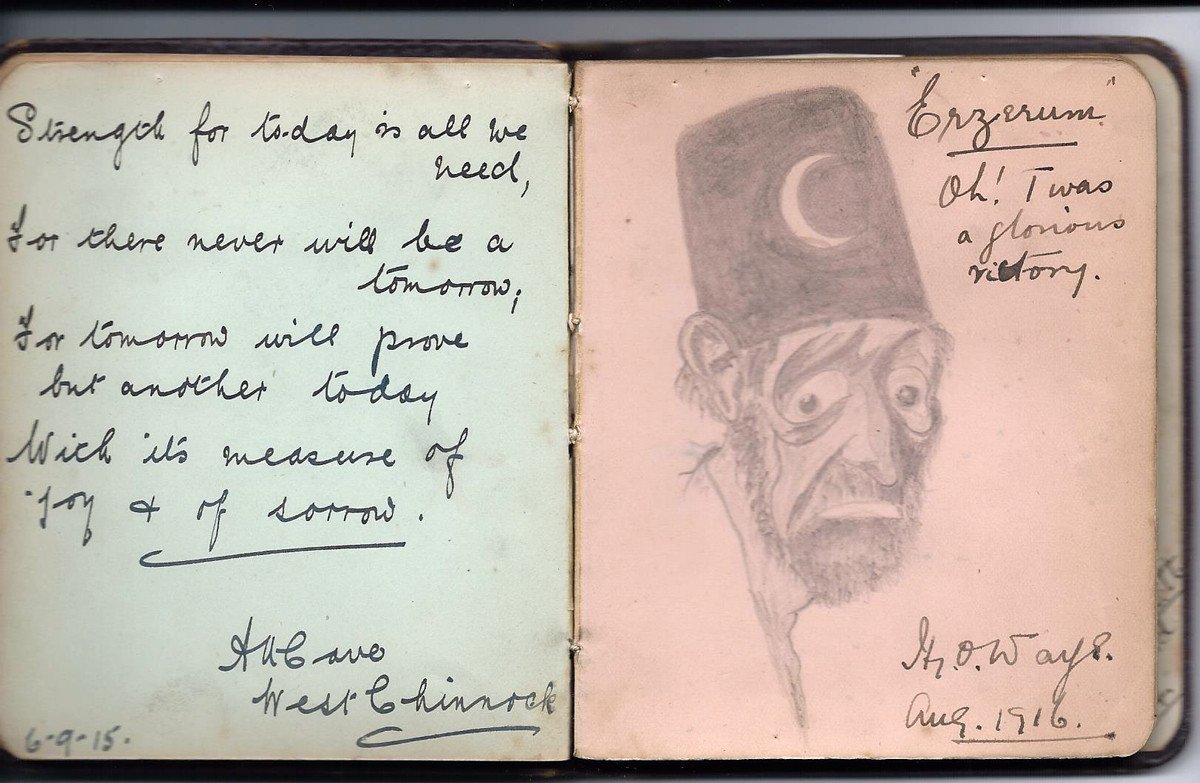 Strength for to-day is all we
need,
For there never will be a
tomorrow;
For tomorrow will prove
but another today
With it's measure of
joy & of sorrow.
Cave
West Chinnock
6-9-15.
"Erzerum"
Oh! T was
a glorious
victory.
Aug. 1916.